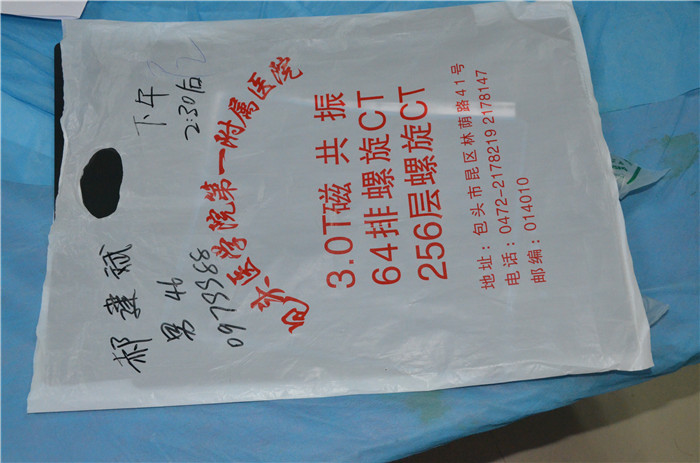 包头医学院第一附属医院
3.0T磁 共 振
64排螺旋CT
256层螺旋CT
地址：包头市昆区林荫路41号
电话：0472-2178219 2178147
邮编：014010
男 46
0979988
下午
2:30后